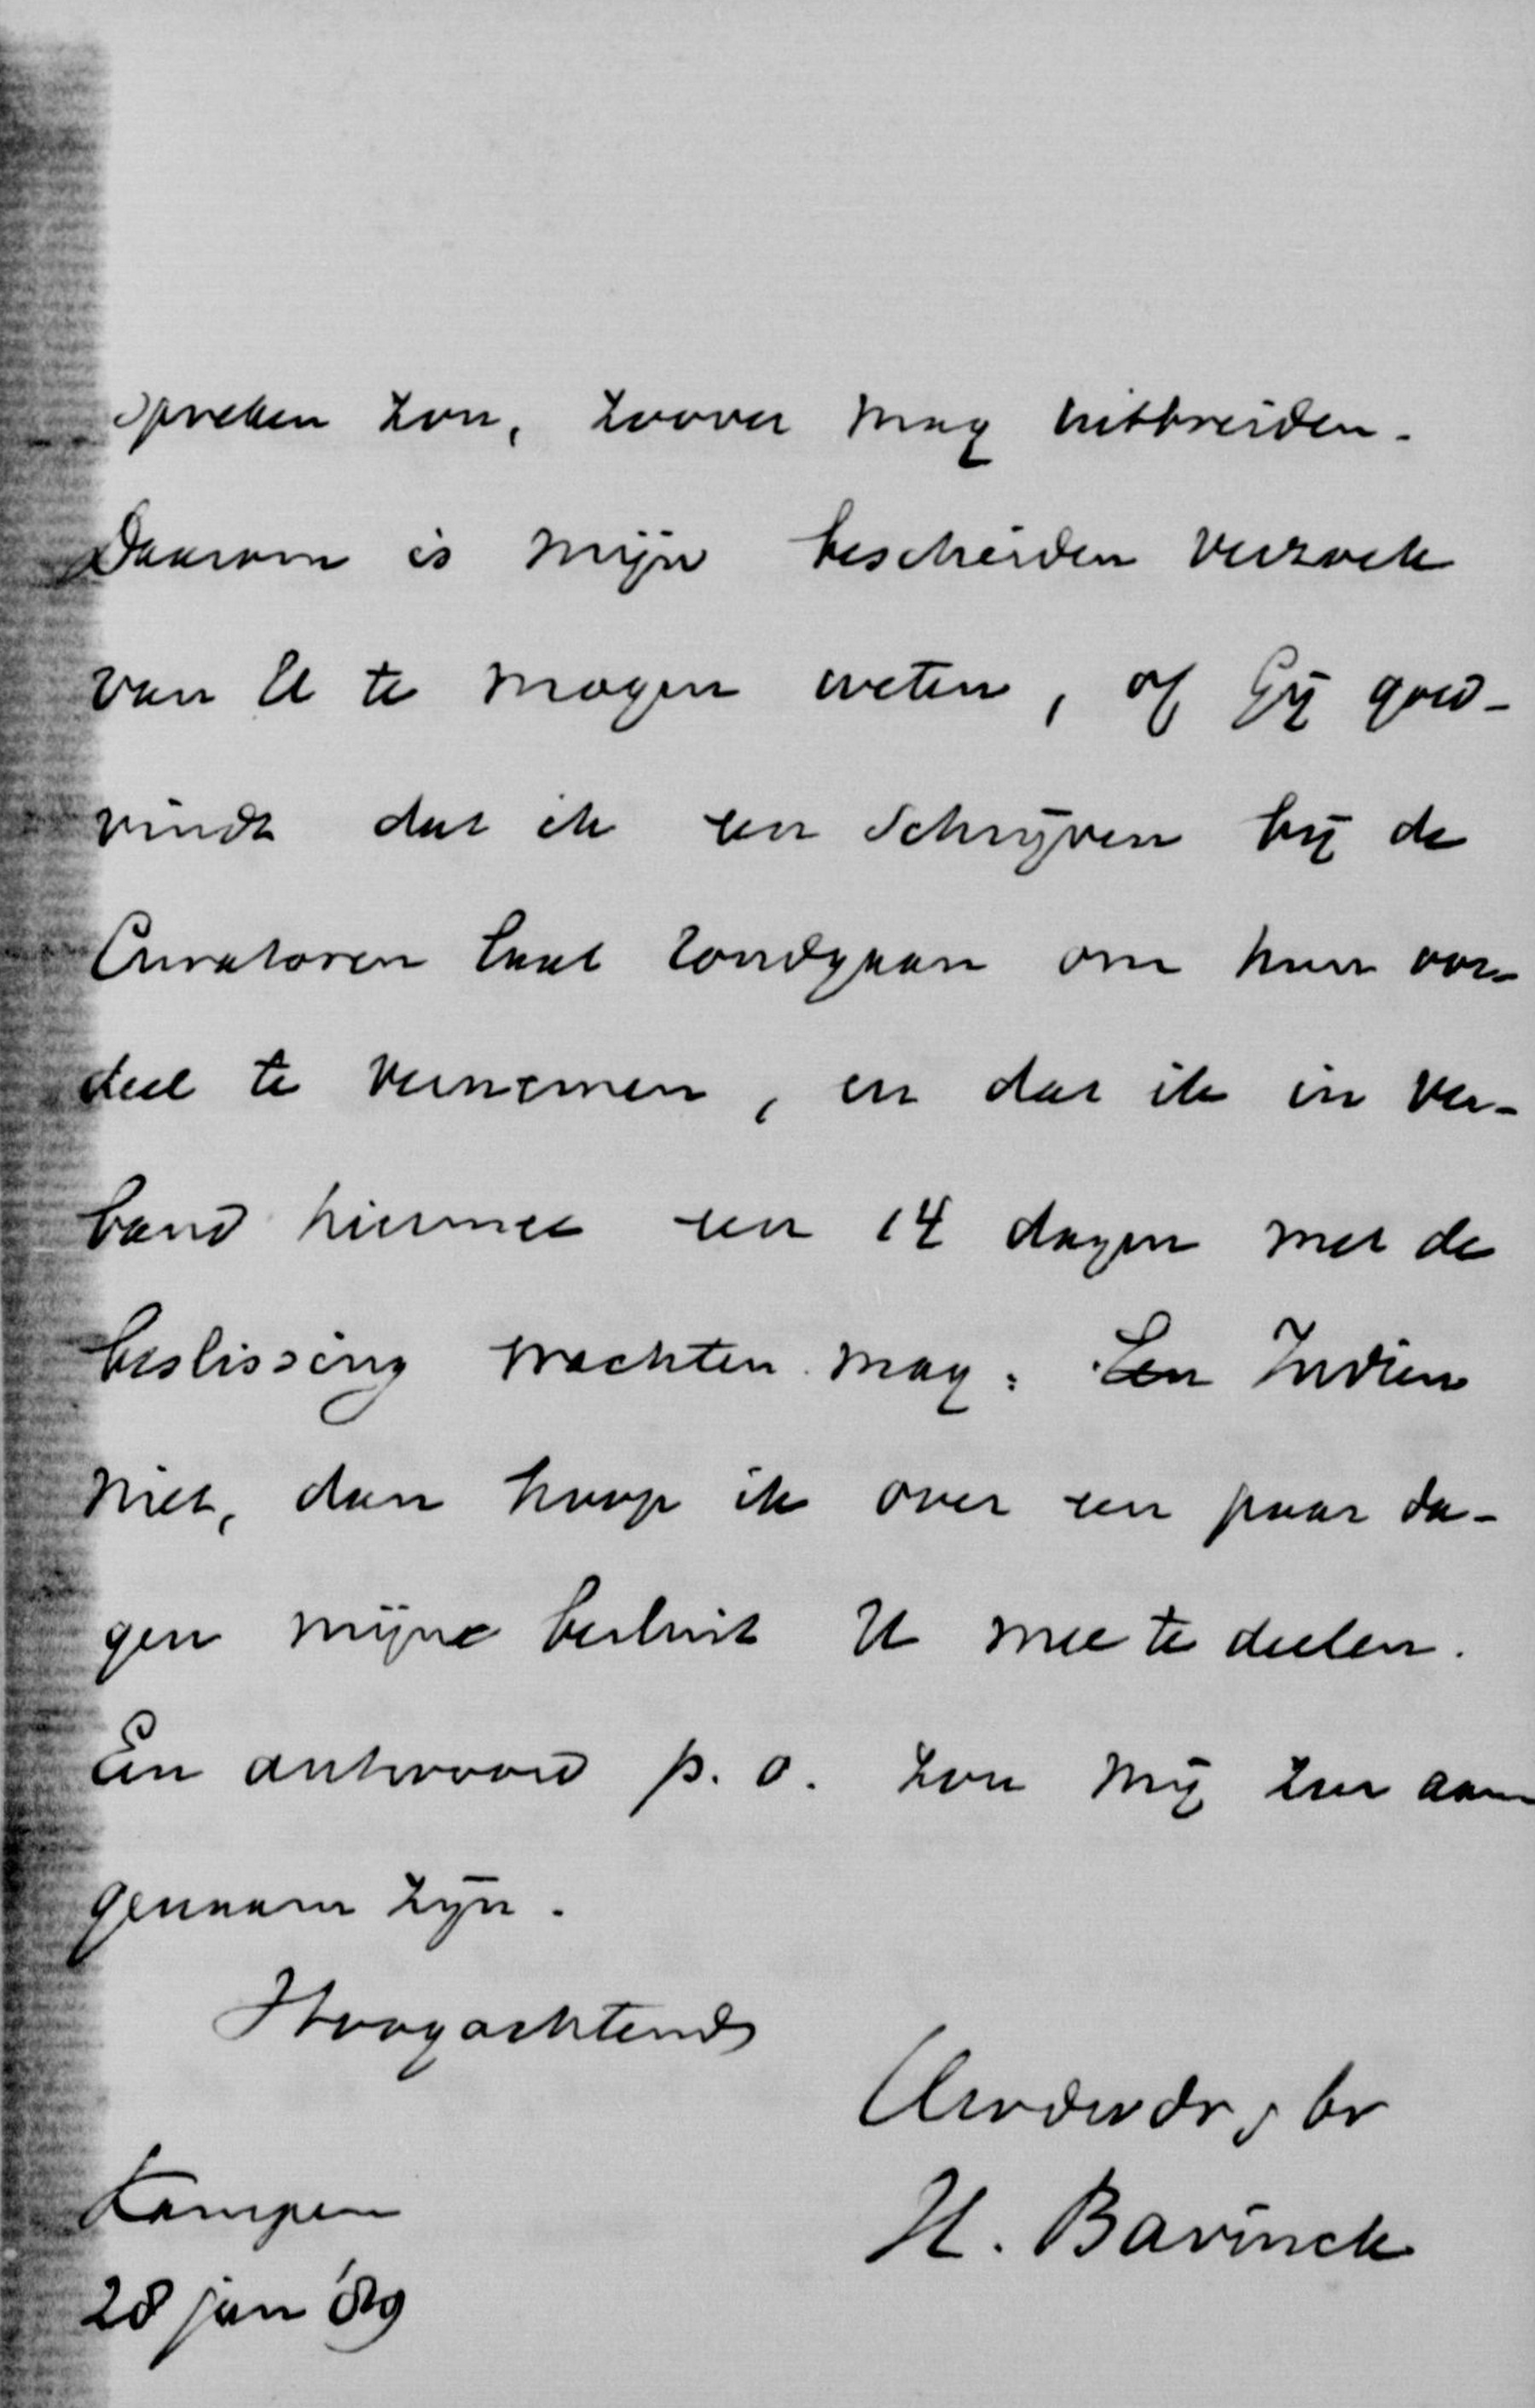 spreken zou, zoover mag uitbreiden.
Daarom is mijn bescheiden verzoek
van U te mogen weten, of Gij goed-
vindt dat ik een schrijven bij de
Curatoren laat rondgaan om hun oor-
deel te vernemen, en dat ik in ver-
band hiermee een 14 dagen met de
beslissing wachten mag. Een Indien
niet, dan hoop ik over een paar da-
gen mijne besluit U mee te deelen.
Een antwoord p. o. zou mij zeer aan
genaam zijn.
Hoogachtend
Uw dw dr & br
H. Bavinck
Kampen
28 jan '89